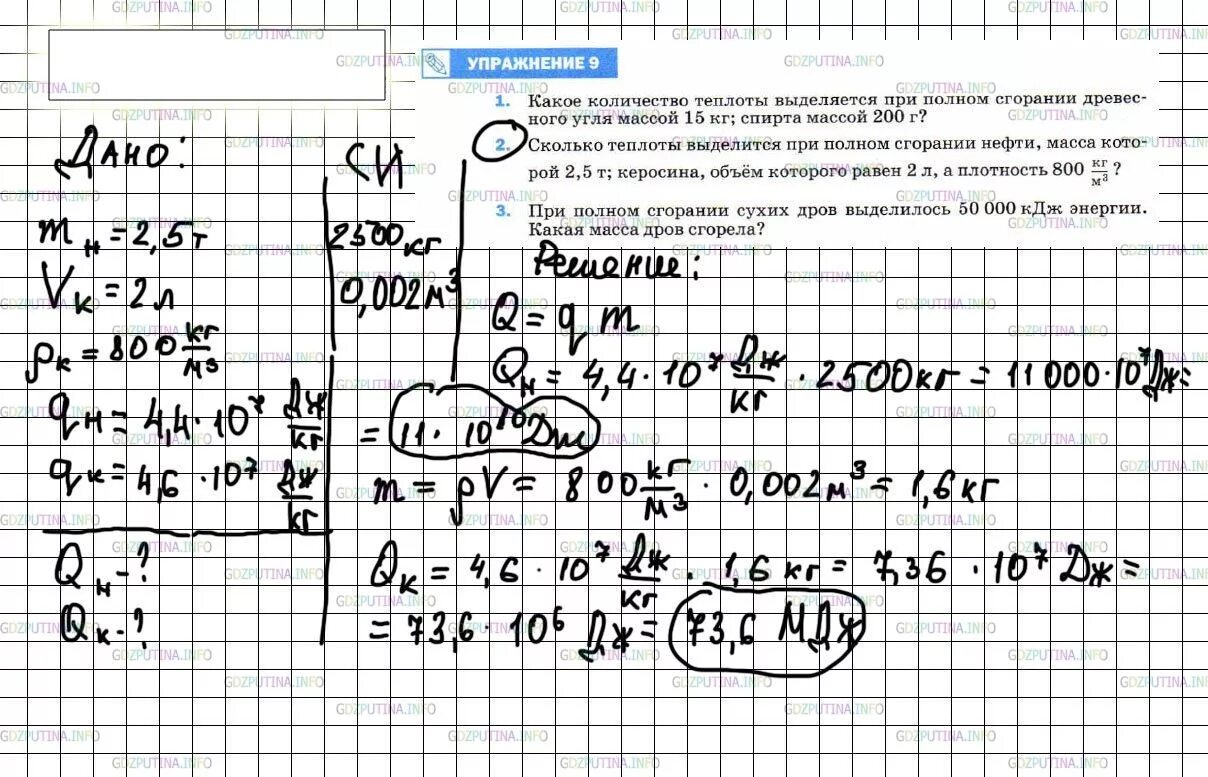 УПРАЖНЕНИЕ 9
1. Какое количество теплоты выделяется при полном сгорании древес-
ного угля массой 15 кг; спирта массой 200 г?
2. Сколько теплоты выделится при полном сгорании нефти, масса кото-
рой 2,5 т; керосина, объём которого равен 2 л, а плотность 800 кг/м³ ?
3. При полном сгорании сухих дров выделилось 50 000 кДж энергии.
Какая масса дров сгорела?
Дано:
mн = 2,5 т
Vк = 2 л
ρк = 800 кг/м³
qн = 4,4 · 10⁷ Дж/кг
qк = 4,6 · 10⁷ Дж/кг
Qн - ?
Qк - ?
СИ
2500 кг
0,002 м³
Решение:
Q = q m
Qн = 4,4 · 10⁷ Дж/кг · 2500 кг = 11 000 · 10⁷ Дж =
= 11 · 10¹⁰ Дж
m = ρV = 800 кг/м³ · 0,002 м³ = 1,6 кг
Qк = 4,6 · 10⁷ Дж/кг · 1,6 кг = 7,36 · 10⁷ Дж =
= 73,6 · 10⁶ Дж = 73,6 МДж
GDZPUTINA.INFO